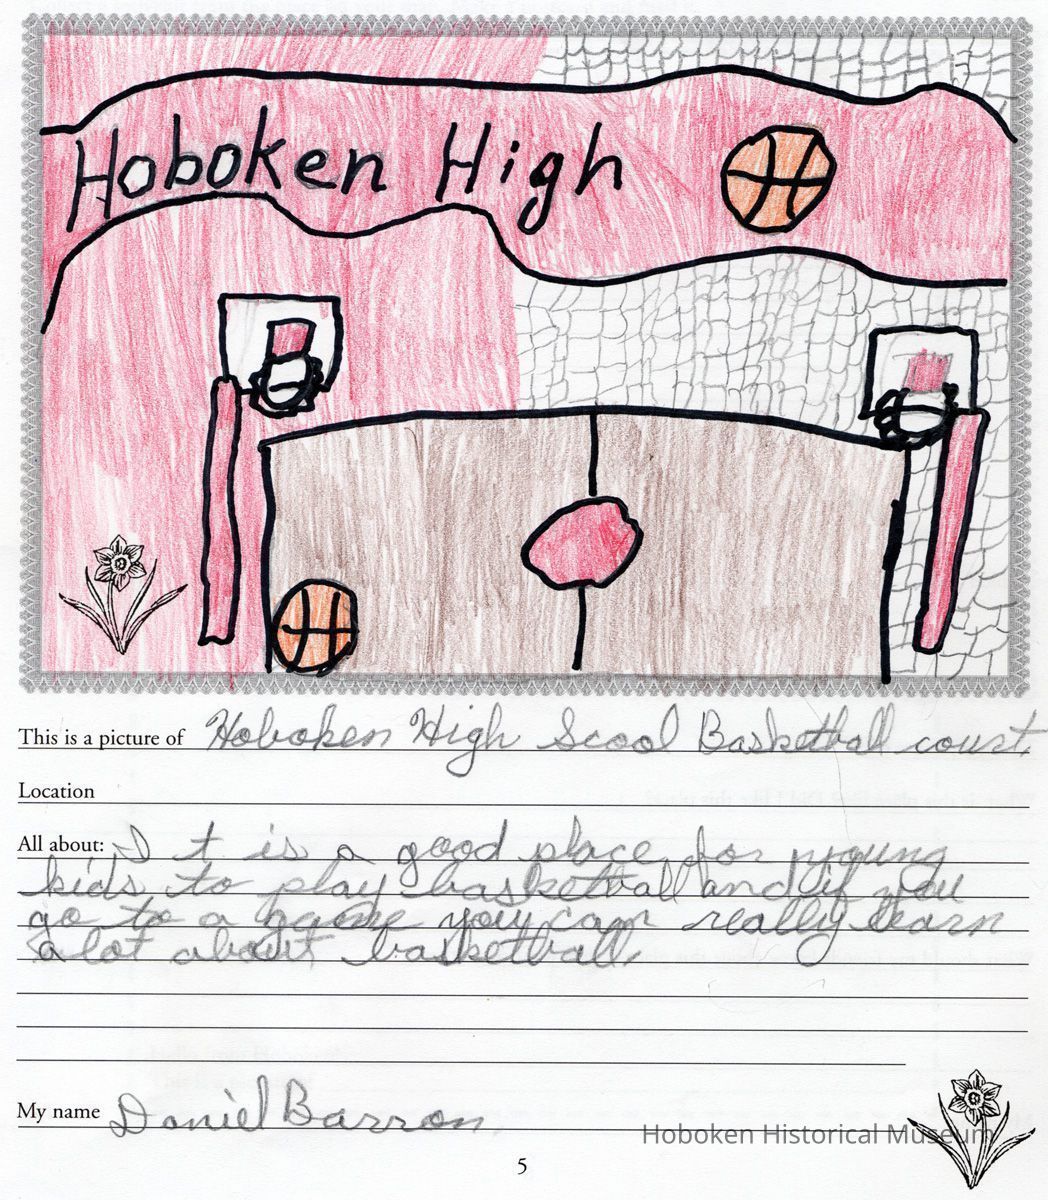 Hoboken High
This is a picture of Hoboken High Scool Basketball court
Location
All about: It is a good place for young
kids to play basketball and if you
go to a game you can really learn
a lot about basketball.
My name Daniel Barron
Hoboken Historical Museum
5